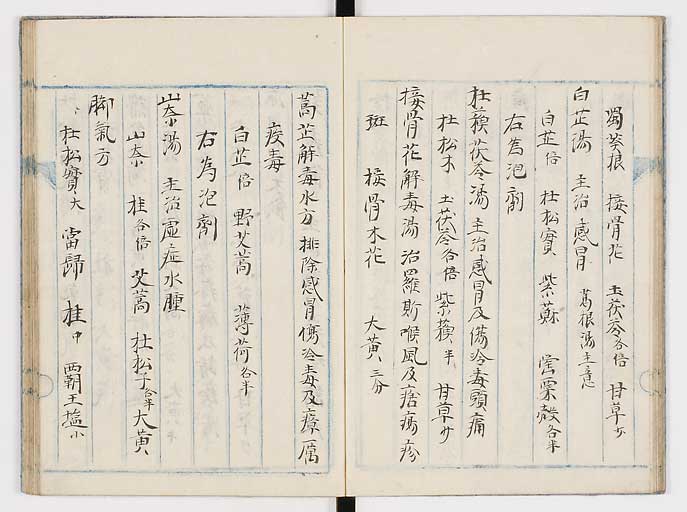 蜀葵根　接骨花　土茯苓各倍　甘草少
白芷湯　主治感冒　葛根湯主意
白芷倍　杜松實　紫蘇　罌粟殼各半
右為泡劑
杜蘓茯苓湯　主治感冒及傷冷毒頭痛
杜松木　土茯苓各倍　紫蘓半　甘草少
接骨花解毒湯　治羅斯喉風及痞瘍疹
斑　接骨木花　大黃三分
蒿芷解毒水方　排除感冒傷冷毒及瘴厲
疫毒
白芷倍　野艾蒿　薄荷各半
右為泡劑
山柰湯　主治虛症水腫
山柰　桂各倍　艾蒿　杜松子各半　大黃
脚氣方
杜松實大　當歸　桂中　覇王塩小